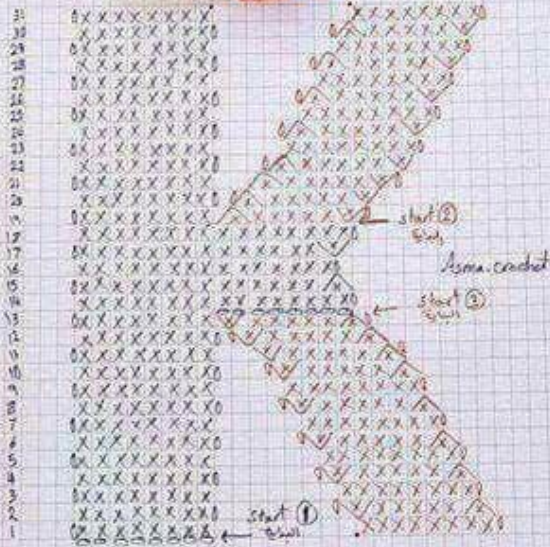 31
30
29
28
27
26
25
24
23
22
21
20
19
18
17
16
15
14
13
12
11
10
9
8
7
6
5
4
3
2
1
start ②
البداية
Asma.crochet
start ③
البداية
start ①
البداية